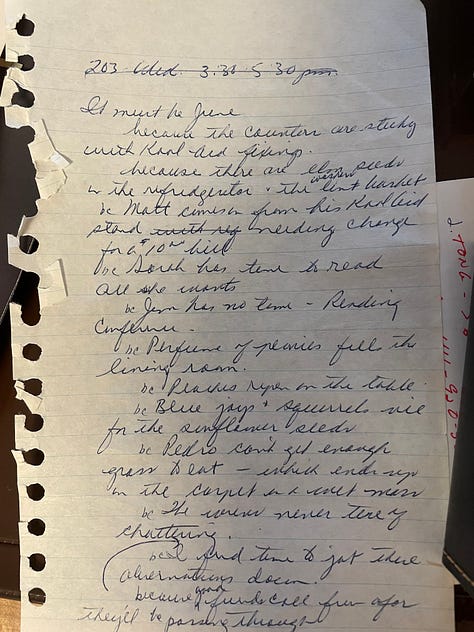 203 Wed. 3:30 5:30 pm.
It must be June
because the counters are sticky
with Kool-Aid fixings.
because there are elm seeds
in the refridgerator & the washer lint basket
bc Matt comes in from his Kool aid
stand needing change
for a $10 00 bill
bc Sarah has time to read
all she wants
bc Jim has no time - Reading
Conference.
bc Perfume of peonies fills the
living room.
bc Peaches ripen on the table.
bc Blue jays & squirrels vie
for the sunflower seeds
bc Pedro can't get enough
grass to eat - which ends up
on the carpet in a wet mess
bc The wrens never tire of
chattering.
bc I find time to jot these
observations down.
because good friends call from afar
they'll be passing through